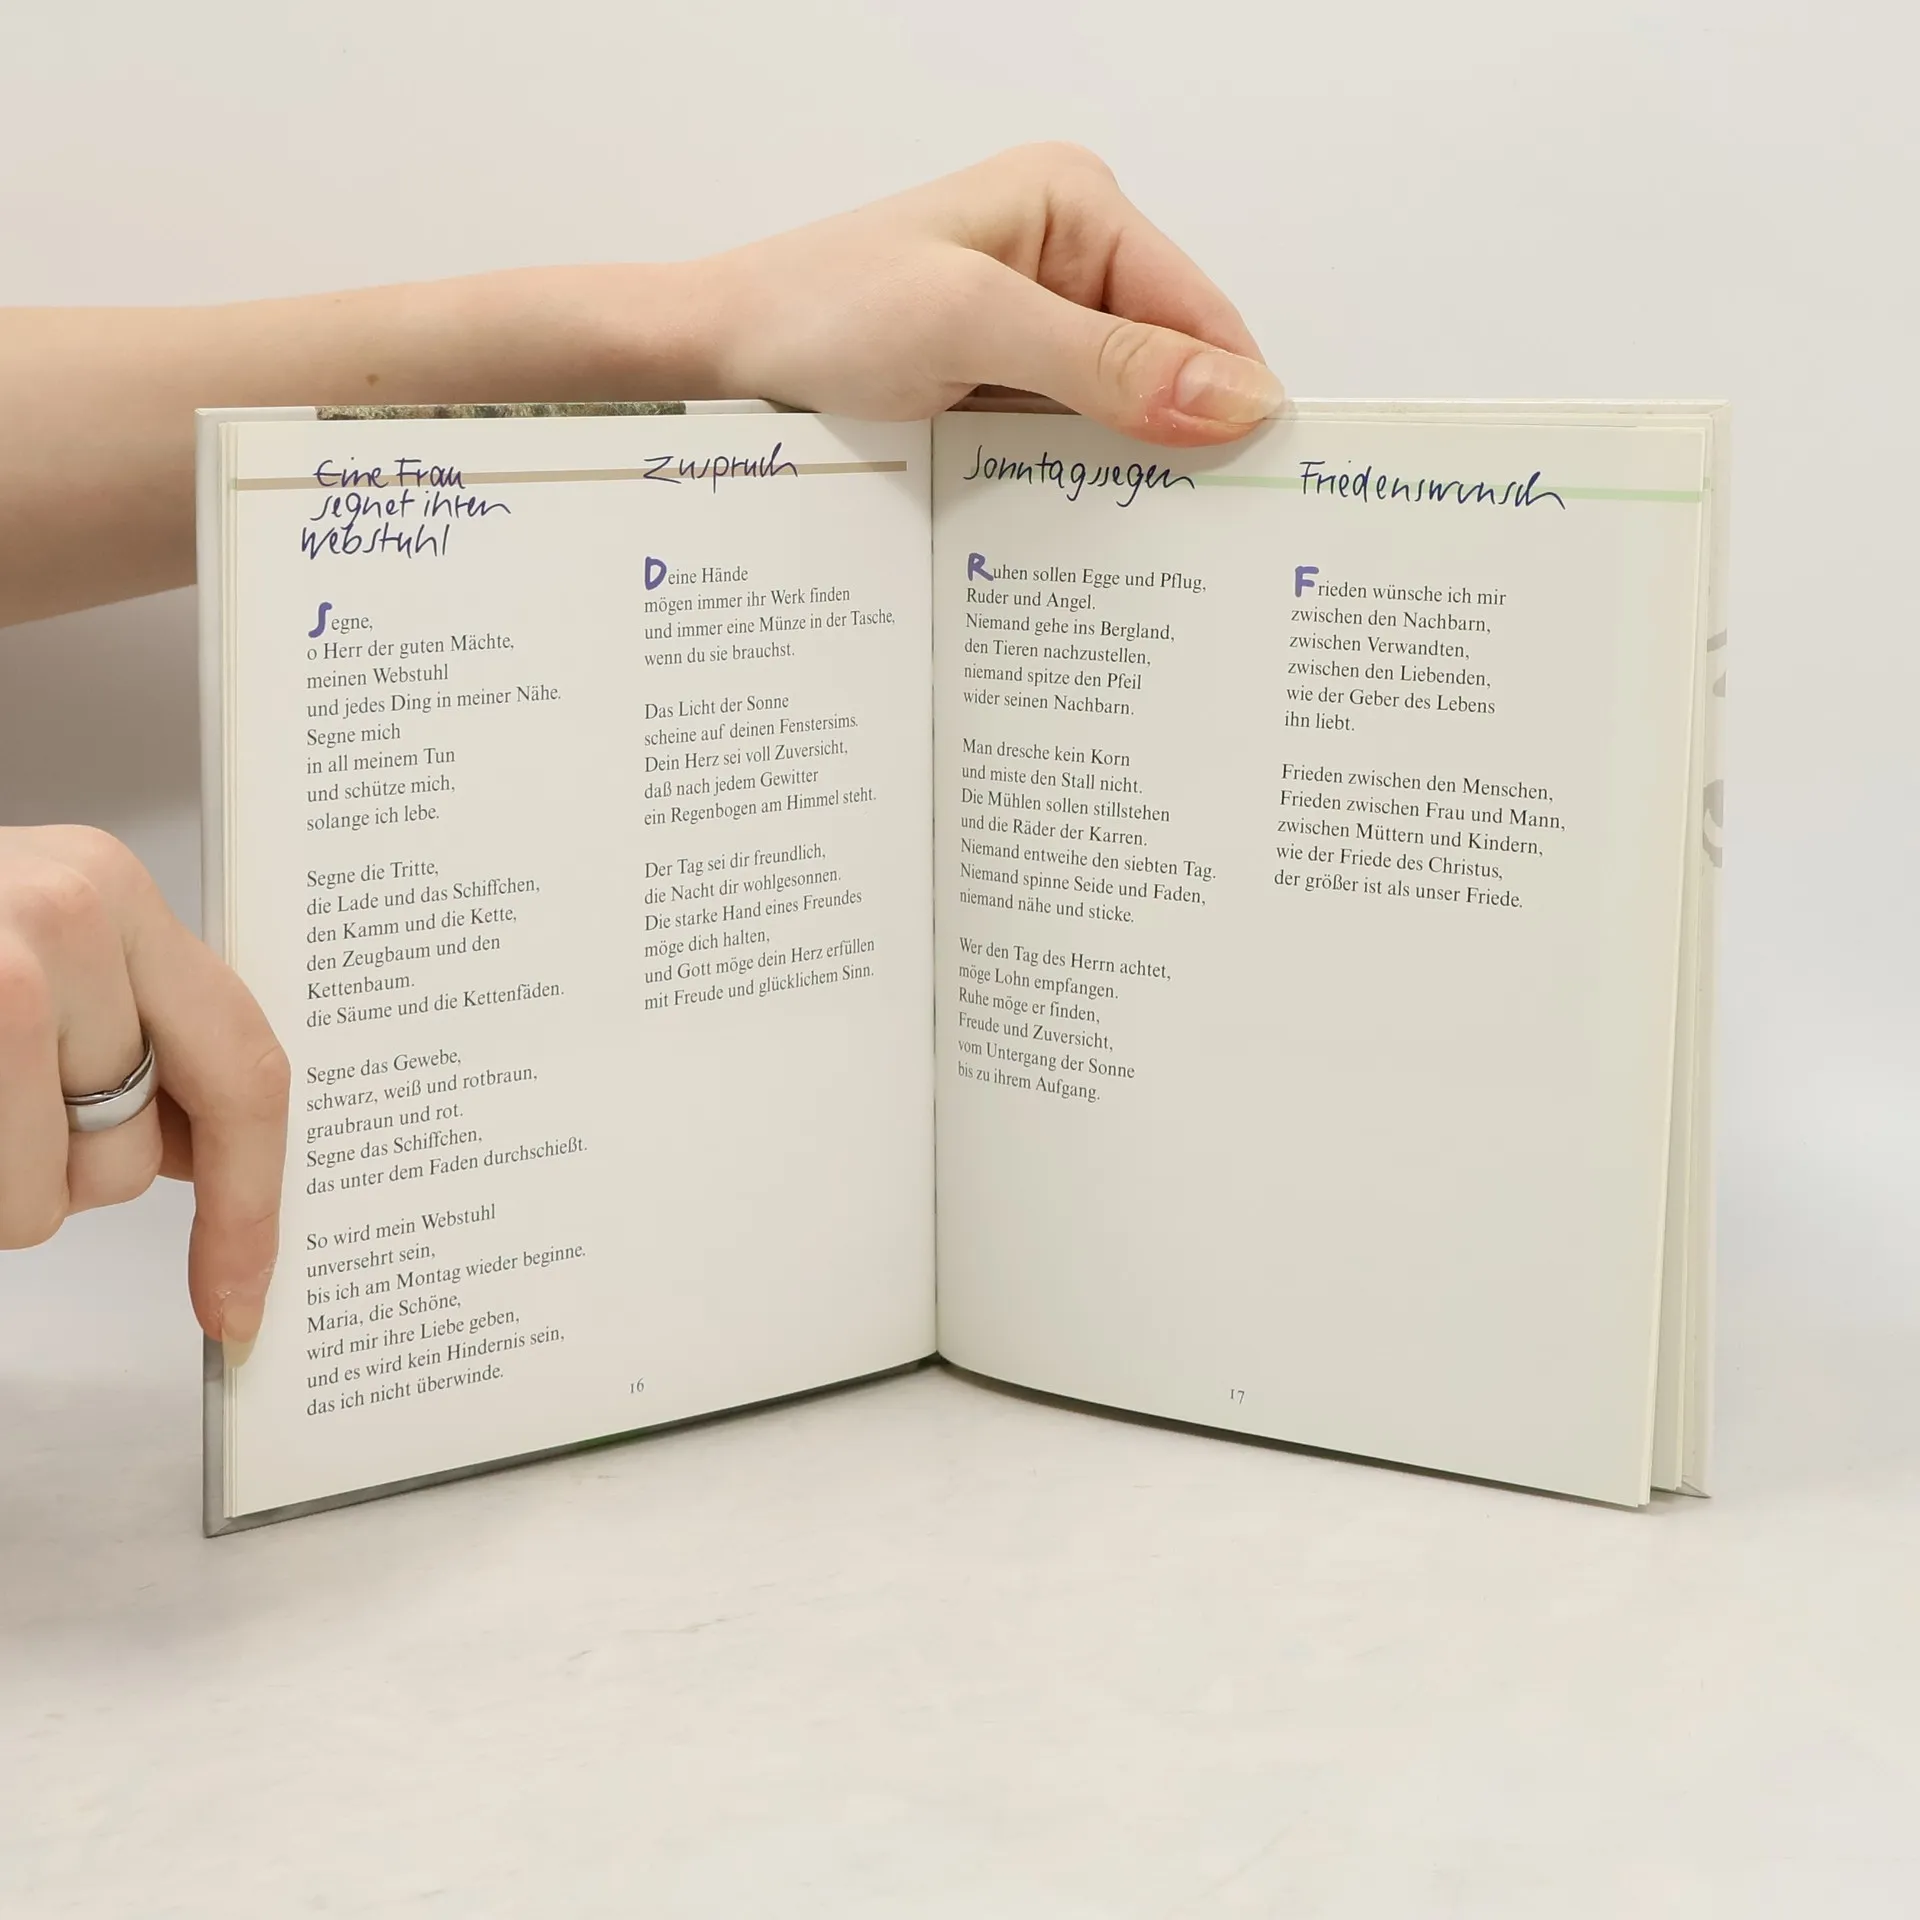 Eine Frau
segnet ihren
Webstuhl
Segne,
o Herr der guten Mächte,
meinen Webstuhl
und jedes Ding in meiner Nähe.
Segne mich
in all meinem Tun
und schütze mich,
solange ich lebe.
Segne die Tritte,
die Lade und das Schiffchen,
den Kamm und die Kette,
den Zeugbaum und den
Kettenbaum.
die Säume und die Kettenfäden.
Segne das Gewebe,
schwarz, weiß und rotbraun,
graubraun und rot.
Segne das Schiffchen,
das unter dem Faden durchschießt.
So wird mein Webstuhl
unversehrt sein,
bis ich am Montag wieder beginne.
Maria, die Schöne,
wird mir ihre Liebe geben,
und es wird kein Hindernis sein,
das ich nicht überwinde.
Zuspruch
Deine Hände
mögen immer ihr Werk finden
und immer eine Münze in der Tasche,
wenn du sie brauchst.
Das Licht der Sonne
scheine auf deinen Fenstersims.
Dein Herz sei voll Zuversicht,
daß nach jedem Gewitter
ein Regenbogen am Himmel steht.
Der Tag sei dir freundlich,
die Nacht dir wohlgesonnen.
Die starke Hand eines Freundes
möge dich halten,
und Gott möge dein Herz erfüllen
mit Freude und glücklichem Sinn.
16
Sonntagssegen
Ruhen sollen Egge und Pflug,
Ruder und Angel.
Niemand gehe ins Bergland,
den Tieren nachzustellen,
niemand spitze den Pfeil
wider seinen Nachbarn.
Man dresche kein Korn
und miste den Stall nicht.
Die Mühlen sollen stillstehen
und die Räder der Karren.
Niemand entweihe den siebten Tag.
Niemand spinne Seide und Faden,
niemand nähe und sticke.
Wer den Tag des Herrn achtet,
möge Lohn empfangen.
Ruhe möge er finden,
Freude und Zuversicht,
vom Untergang der Sonne
bis zu ihrem Aufgang.
Friedenswunsch
Frieden wünsche ich mir
zwischen den Nachbarn,
zwischen Verwandten,
zwischen den Liebenden,
wie der Geber des Lebens
ihn liebt.
Frieden zwischen den Menschen,
Frieden zwischen Frau und Mann,
zwischen Müttern und Kindern,
wie der Friede des Christus,
der größer ist als unser Friede.
17